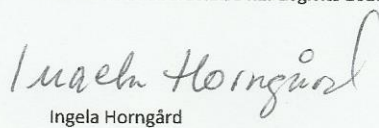 Ingela Horngård
Ingela Horngård